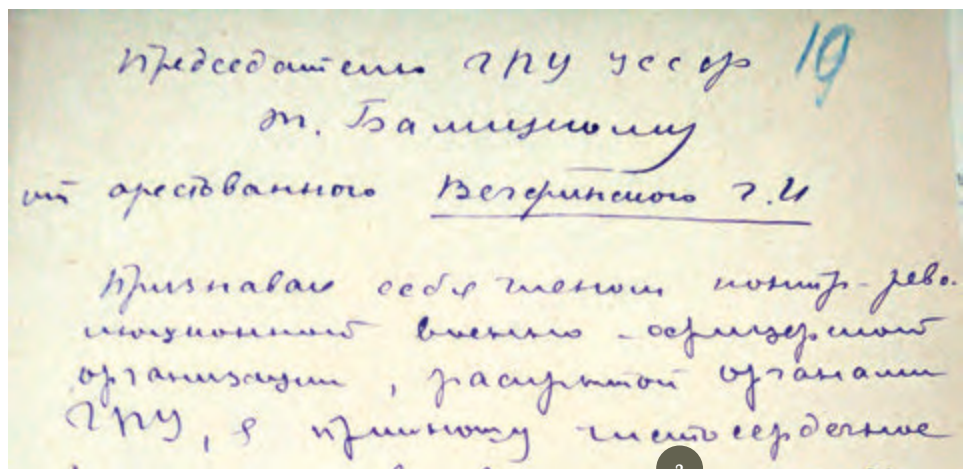 Председателю ГПУ УССР 19
т. Балицкому
от арестованного Вечеринского Г.И
Признавая себя членом контр-рево-
люционной военно-офицерской
организации, раскрытой органами
ГПУ, я приношу чистосердечное